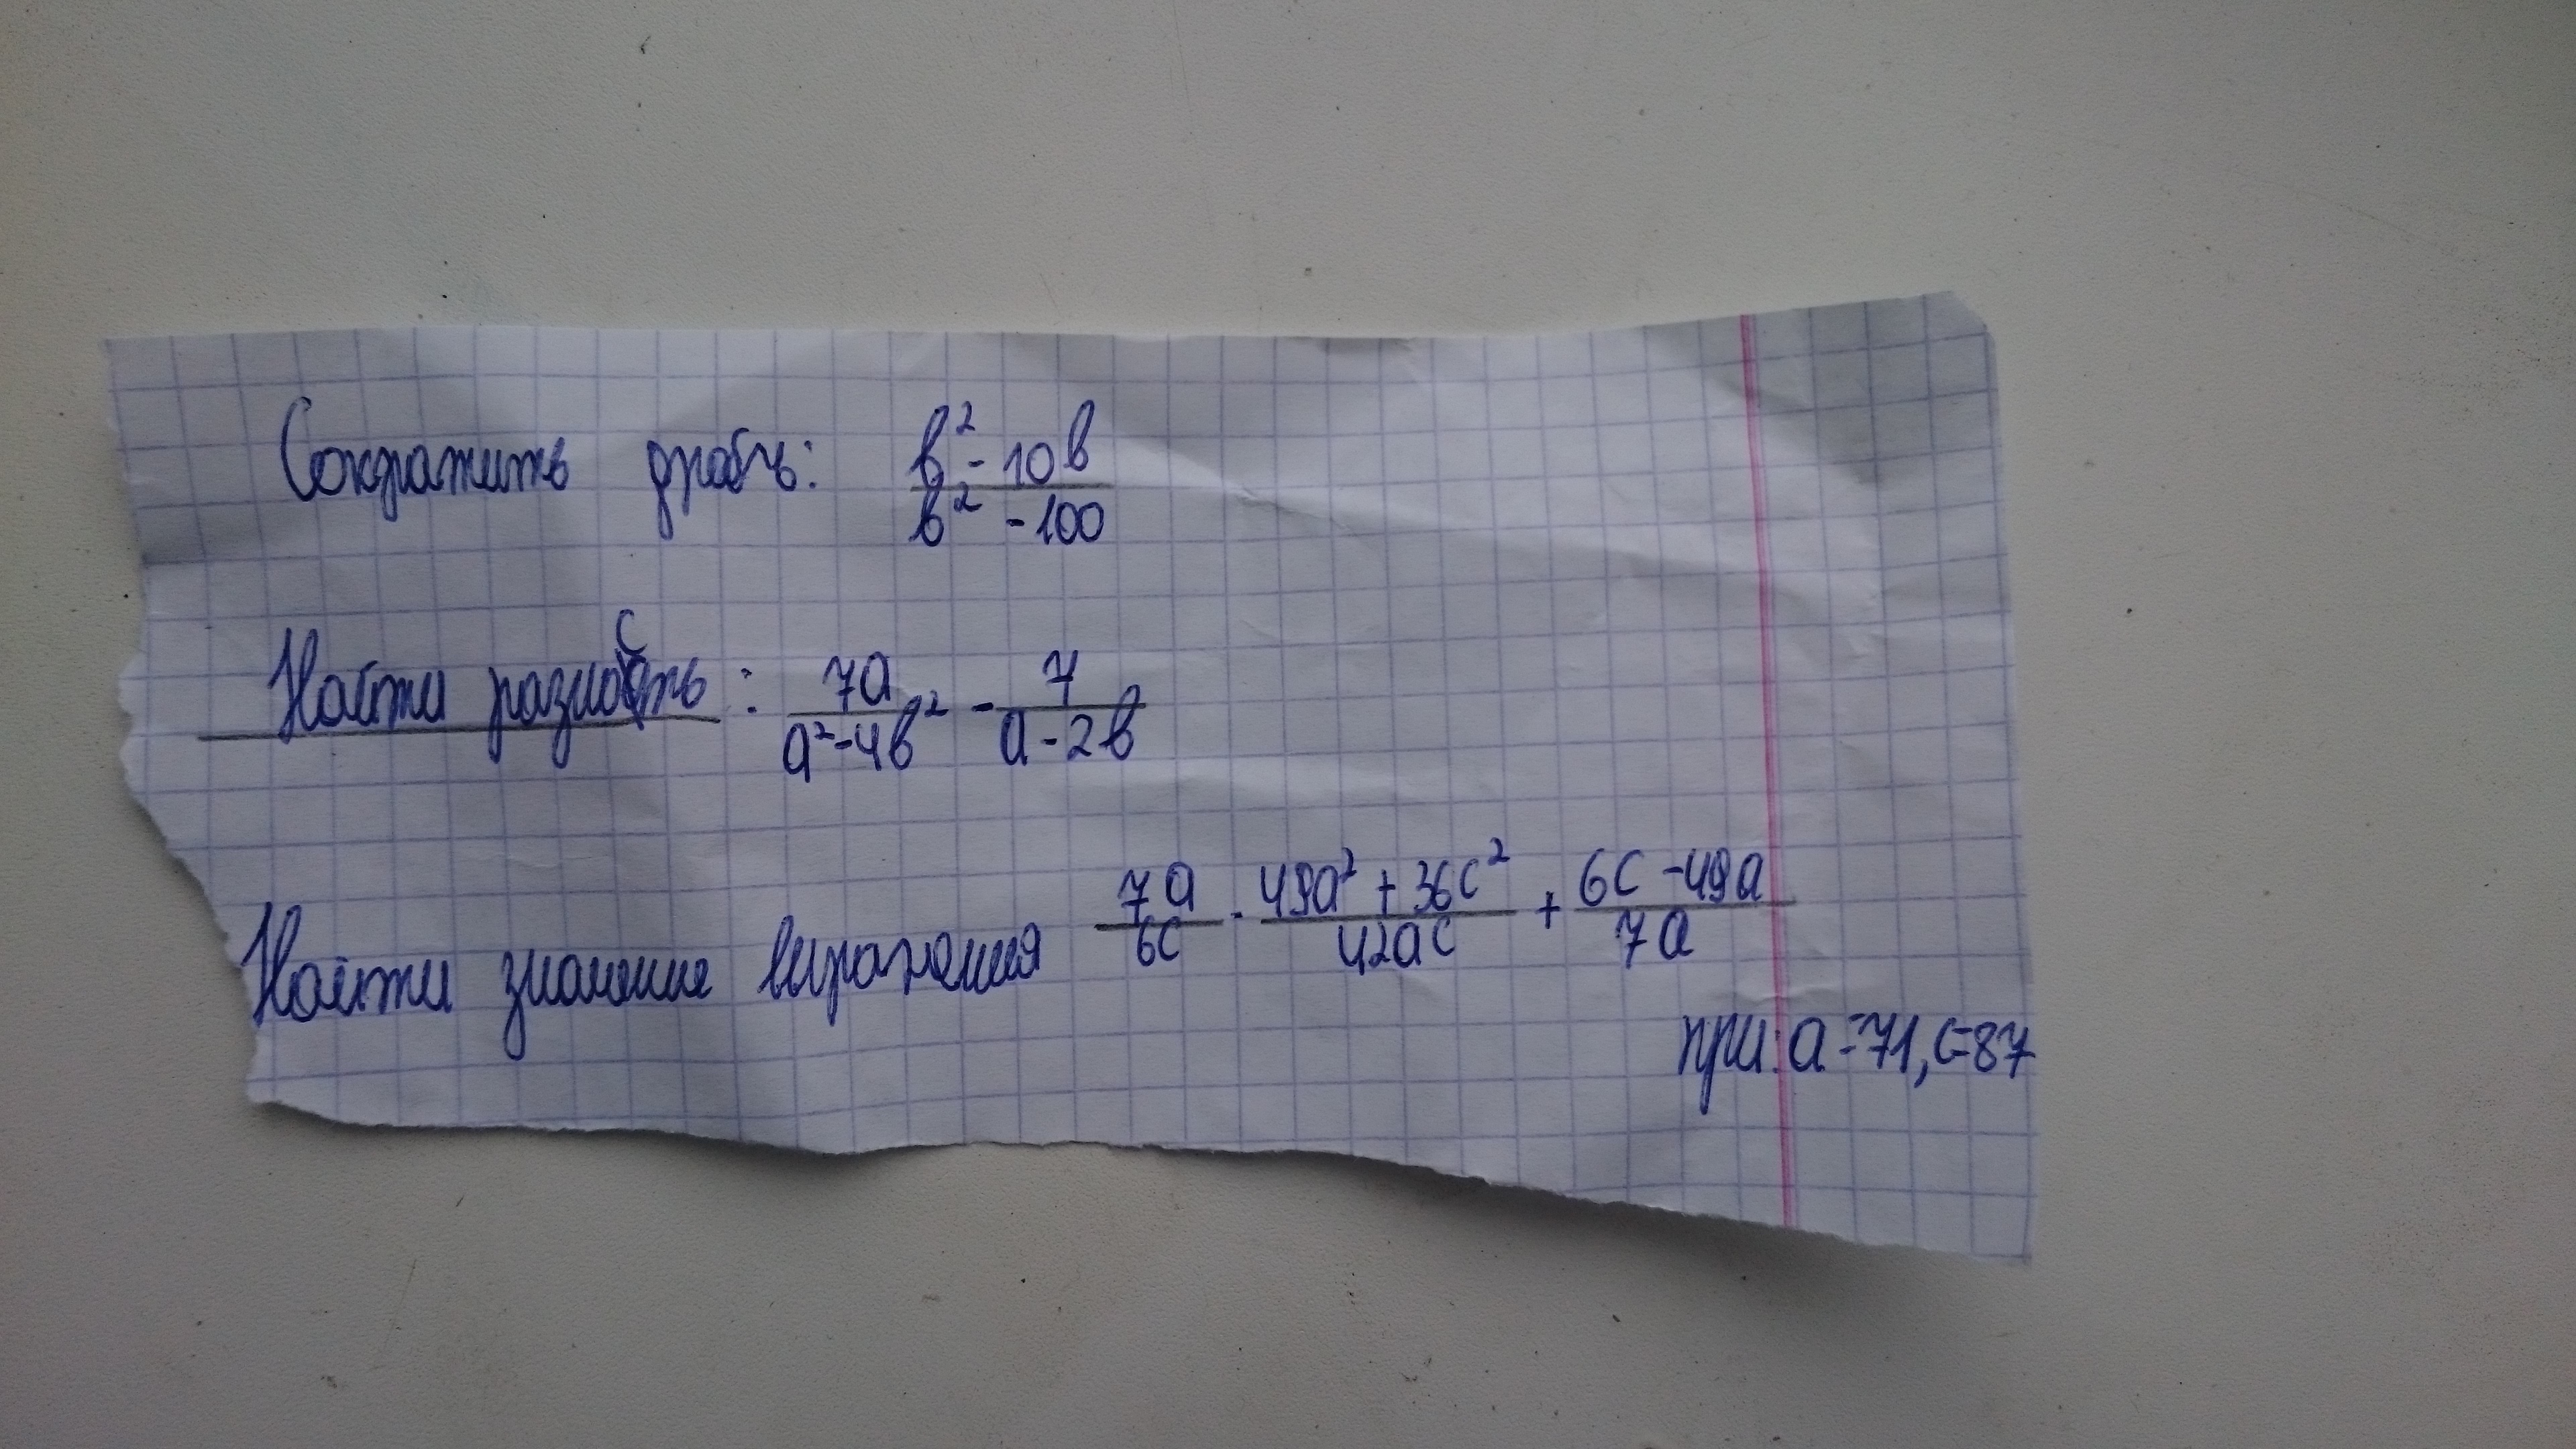 Сократить дробь: (b² - 10b)/(b² - 100)
Найти разность: 7a/(a² - 4b²) - 7/(a - 2b)
Найти значение выражения 7a/6c - (49a² + 36c²)/42ac + (6c - 49a)/7a
при: a = 71, c = 87